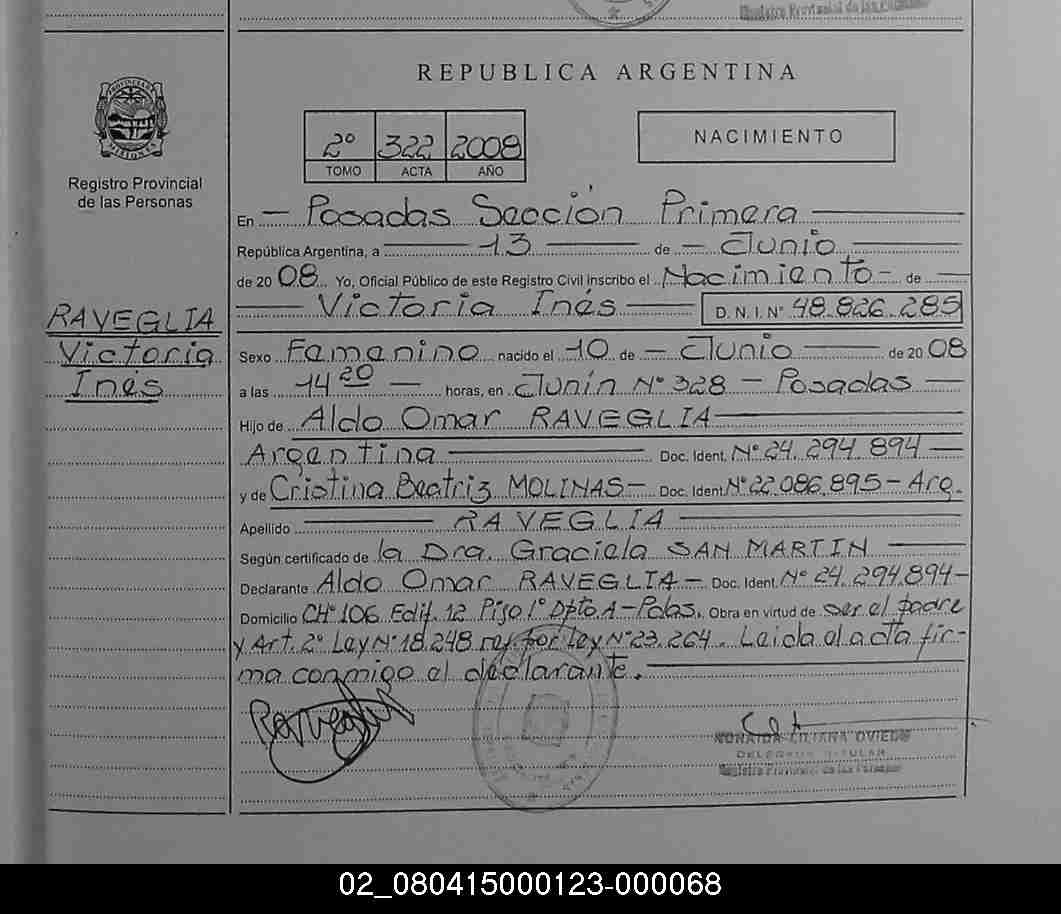 Registro Provincial de las Personas
REPUBLICA ARGENTINA
PROVINCIA DE
MISIONES
Registro Provincial
de las Personas
2º 322 2008
TOMO ACTA AÑO
NACIMIENTO
RAVEGLIA
Victoria
Inés
En — Posadas Sección Primera
República Argentina, a 13 de — Junio
de 2008. Yo, Oficial Público de este Registro Civil inscribo el Nacimiento — de
Victoria Inés D. N. I. Nº 48.826.285
Sexo Femenino nacido el 10 de — Junio de 2008
a las 14 20 — horas, en Junín Nº 328 — Posadas —
Hijo de Aldo Omar RAVEGLIA
Argentina Doc. Ident. Nº 24.294.894
y de Cristina Beatriz MOLINAS — Doc. Ident. Nº 22.086.895 — Arg.
Apellido RAVEGLIA
Según certificado de la Dra. Graciela SAN MARTIN
Declarante Aldo Omar RAVEGLIA — Doc. Ident. Nº 24.294.894 —
Domicilio CHº 106 Edif. 12 Piso 1º Dpto. A — Pdas. Obra en virtud de ser el padre
y Art. 2º Ley Nº 18.248 ref. por Ley Nº 23.264. Leida el acta fir-
ma conmigo el declarante.
Raveglia
LILIANA OVIEDO
DELEGADA TITULAR
Registro Provincial de las Personas
02_080415000123-000068